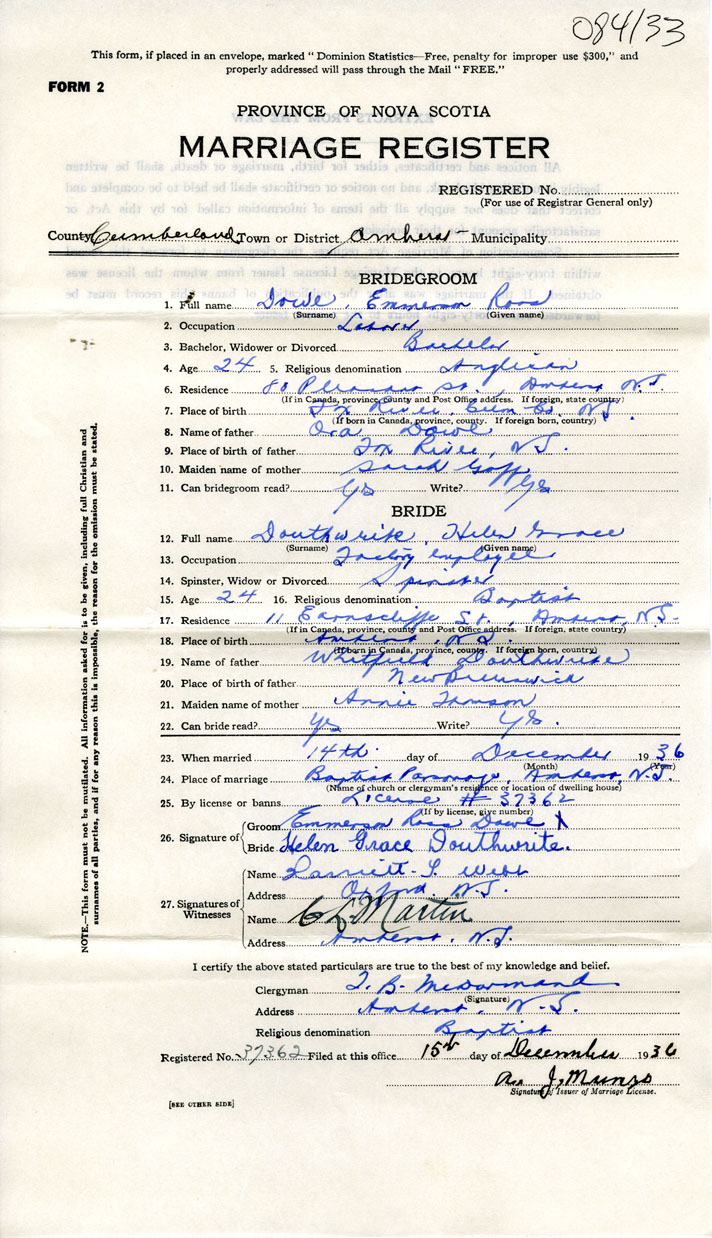 084/33
This form, if placed in an envelope, marked "Dominion Statistics—Free, penalty for improper use $300," and
properly addressed will pass through the Mail "FREE."
FORM 2
PROVINCE OF NOVA SCOTIA
MARRIAGE REGISTER
REGISTERED No.
(For use of Registrar General only)
County Cumberland Town or District Amherst Municipality
BRIDEGROOM
1. Full name Dowe, Emmerson Ross
(Surname) (Given name)
2. Occupation Labor
3. Bachelor, Widower or Divorced Bachelor
4. Age 24 5. Religious denomination Anglican
6. Residence 80 Pleasant St., Amherst N.S.
(If in Canada, province, county and Post Office address. If foreign, state country)
7. Place of birth Fox River, Cum Co. N.S.
(If born in Canada, province, county. If foreign born, country)
8. Name of father Ora Dowe
9. Place of birth of father Fox River, N.S.
10. Maiden name of mother Sarah Goff
11. Can bridegroom read? Yes Write? Yes
BRIDE
12. Full name Douthwrite, Helen Grace
(Surname) (Given name)
13. Occupation Factory employee
14. Spinster, Widow or Divorced Spinster
15. Age 24 16. Religious denomination Baptist
17. Residence 11 Earnscliffe St., Amherst, N.S.
(If in Canada, province, county and Post Office address. If foreign, state country)
18. Place of birth Amherst, N.S.
(If born in Canada, province, county. If foreign born, country)
19. Name of father Whitfield Douthwrite
20. Place of birth of father New Brunswick
21. Maiden name of mother Annie
22. Can bride read? Yes Write? Yes.
23. When married 14th day of December 1936
(Month) (Year)
24. Place of marriage Baptist Parsonage, Amherst, N.S.
(Name of church or clergyman's residence or location of dwelling house)
25. By license or banns License # 37362
(If by license, give number)
26. Signature of
Groom Emmerson Ross Dowe X
Bride Helen Grace Douthwrite.
27. Signatures of Witnesses
Name Harriett S. Webb
Address Oxford, N.S.
Name C L Martin
Address Amherst, N.S.
I certify the above stated particulars are true to the best of my knowledge and belief.
Clergyman T. B. McDormand
(Signature)
Address Amherst, N.S.
Religious denomination Baptist
Registered No. 37362 Filed at this office 15th day of December 1936
J. Munro
Signature of Issuer of Marriage License.
[SEE OTHER SIDE]
NOTE.—This form must not be mutilated. All information asked for is to be given, including full Christian and
surnames of all parties, and if for any reason this is impossible, the reason for the omission must be stated.